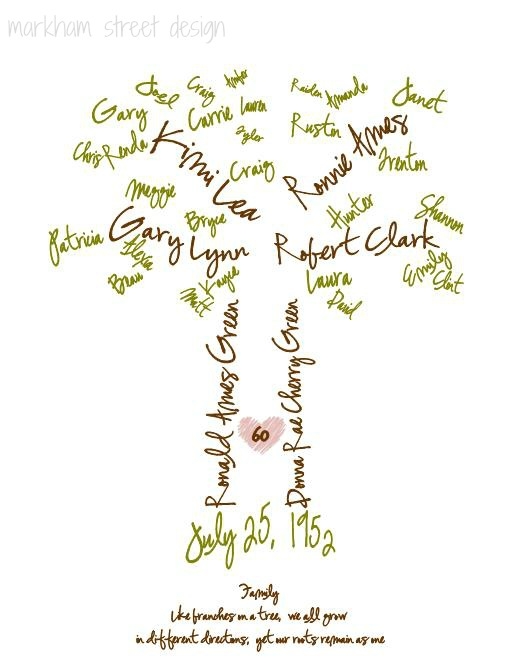 markham street design
Joel
Craig
Amber
Raiden
Amanda
Janet
Gary
Carrie
Lauren
Rustin
Tyler
Chris
Renda
Kimi Lea
Ronnie Ames
Trenton
Craig
Meggie
Bryce
Hunter
Shannon
Patricia
Gary Lynn
Robert Clark
Alexia
Beau
Kayce
Matt
Laura
David
Emily
Clint
Ronald Ames Green
Donna Rae Cherry Green
60
July 25, 1952
Family
Like branches on a tree, we all grow
in different directions, yet our roots remain as one